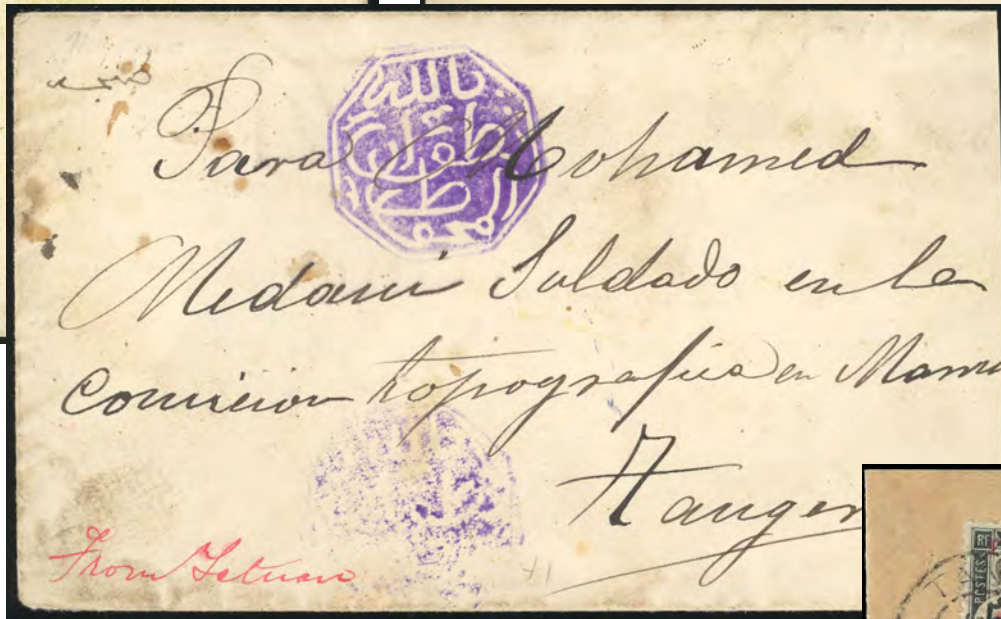 Para Mohamed
Medani Soldado en la
Comicion topografica en Marru
Tanger
From Tetuan
+1
بالله
RF
POSTES